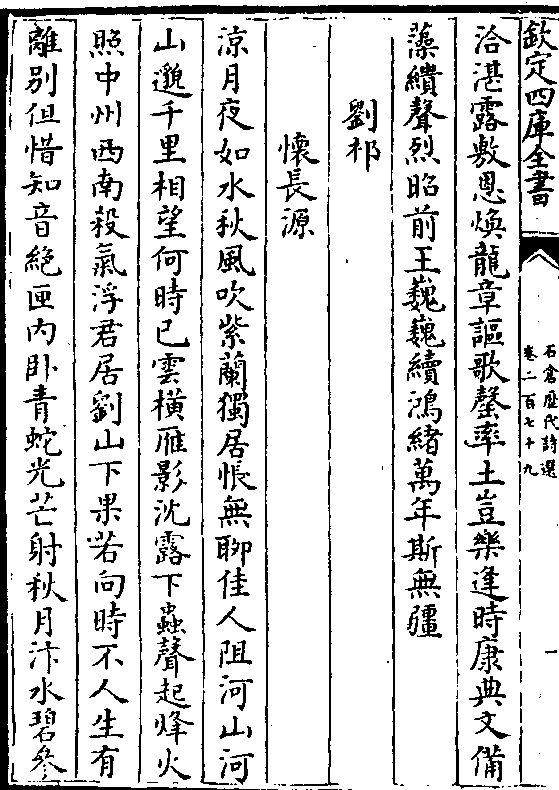 欽定四庫全書
石倉歷代詩選
卷二百七十九
一
洽湛露敷恩煥龍章謳歌罄率土豈樂逢時康典文備
藻繢聲烈昭前王巍巍續鴻緒萬年斯無疆
劉祁
懷長源
涼月夜如水秋風吹紫蘭獨居悵無聊佳人阻河山河
山邈千里相望何時已雲橫雁影沈露下蟲聲起烽火
照中州西南殺氣浮君居劉山下果若向時不人生有
離別但惜知音絕匣内卧青蛇光芒射秋月汴水碧參